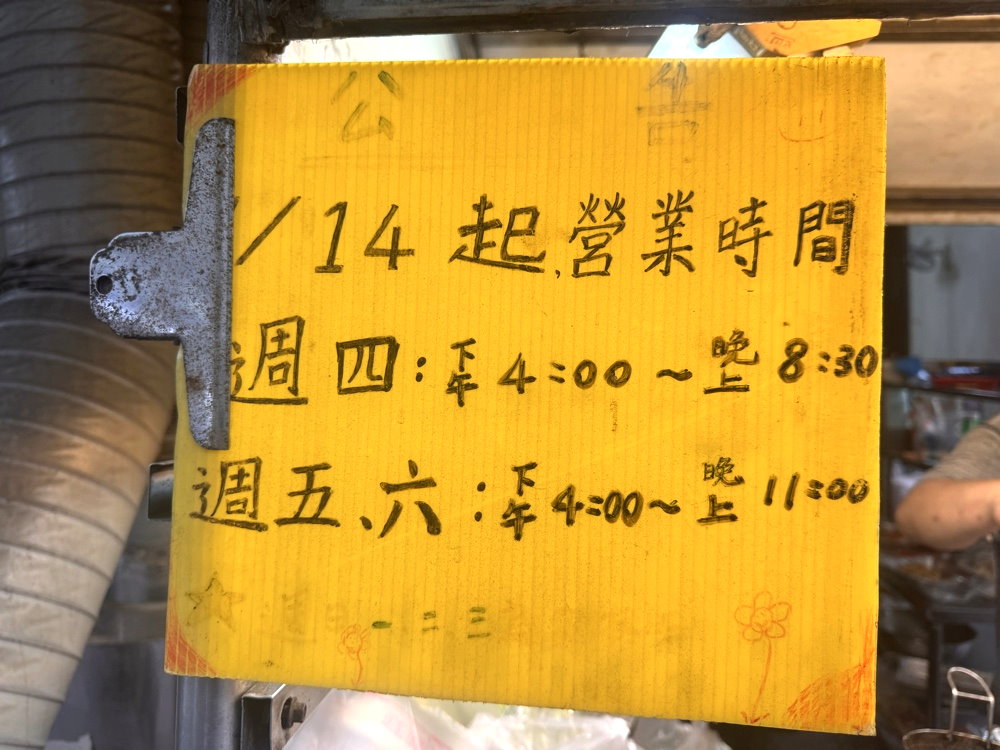 公告
/14 起,營業時間
週四:下午4:00~晚上8:30
週五、六:下午4:00~晚上11:00
一二三